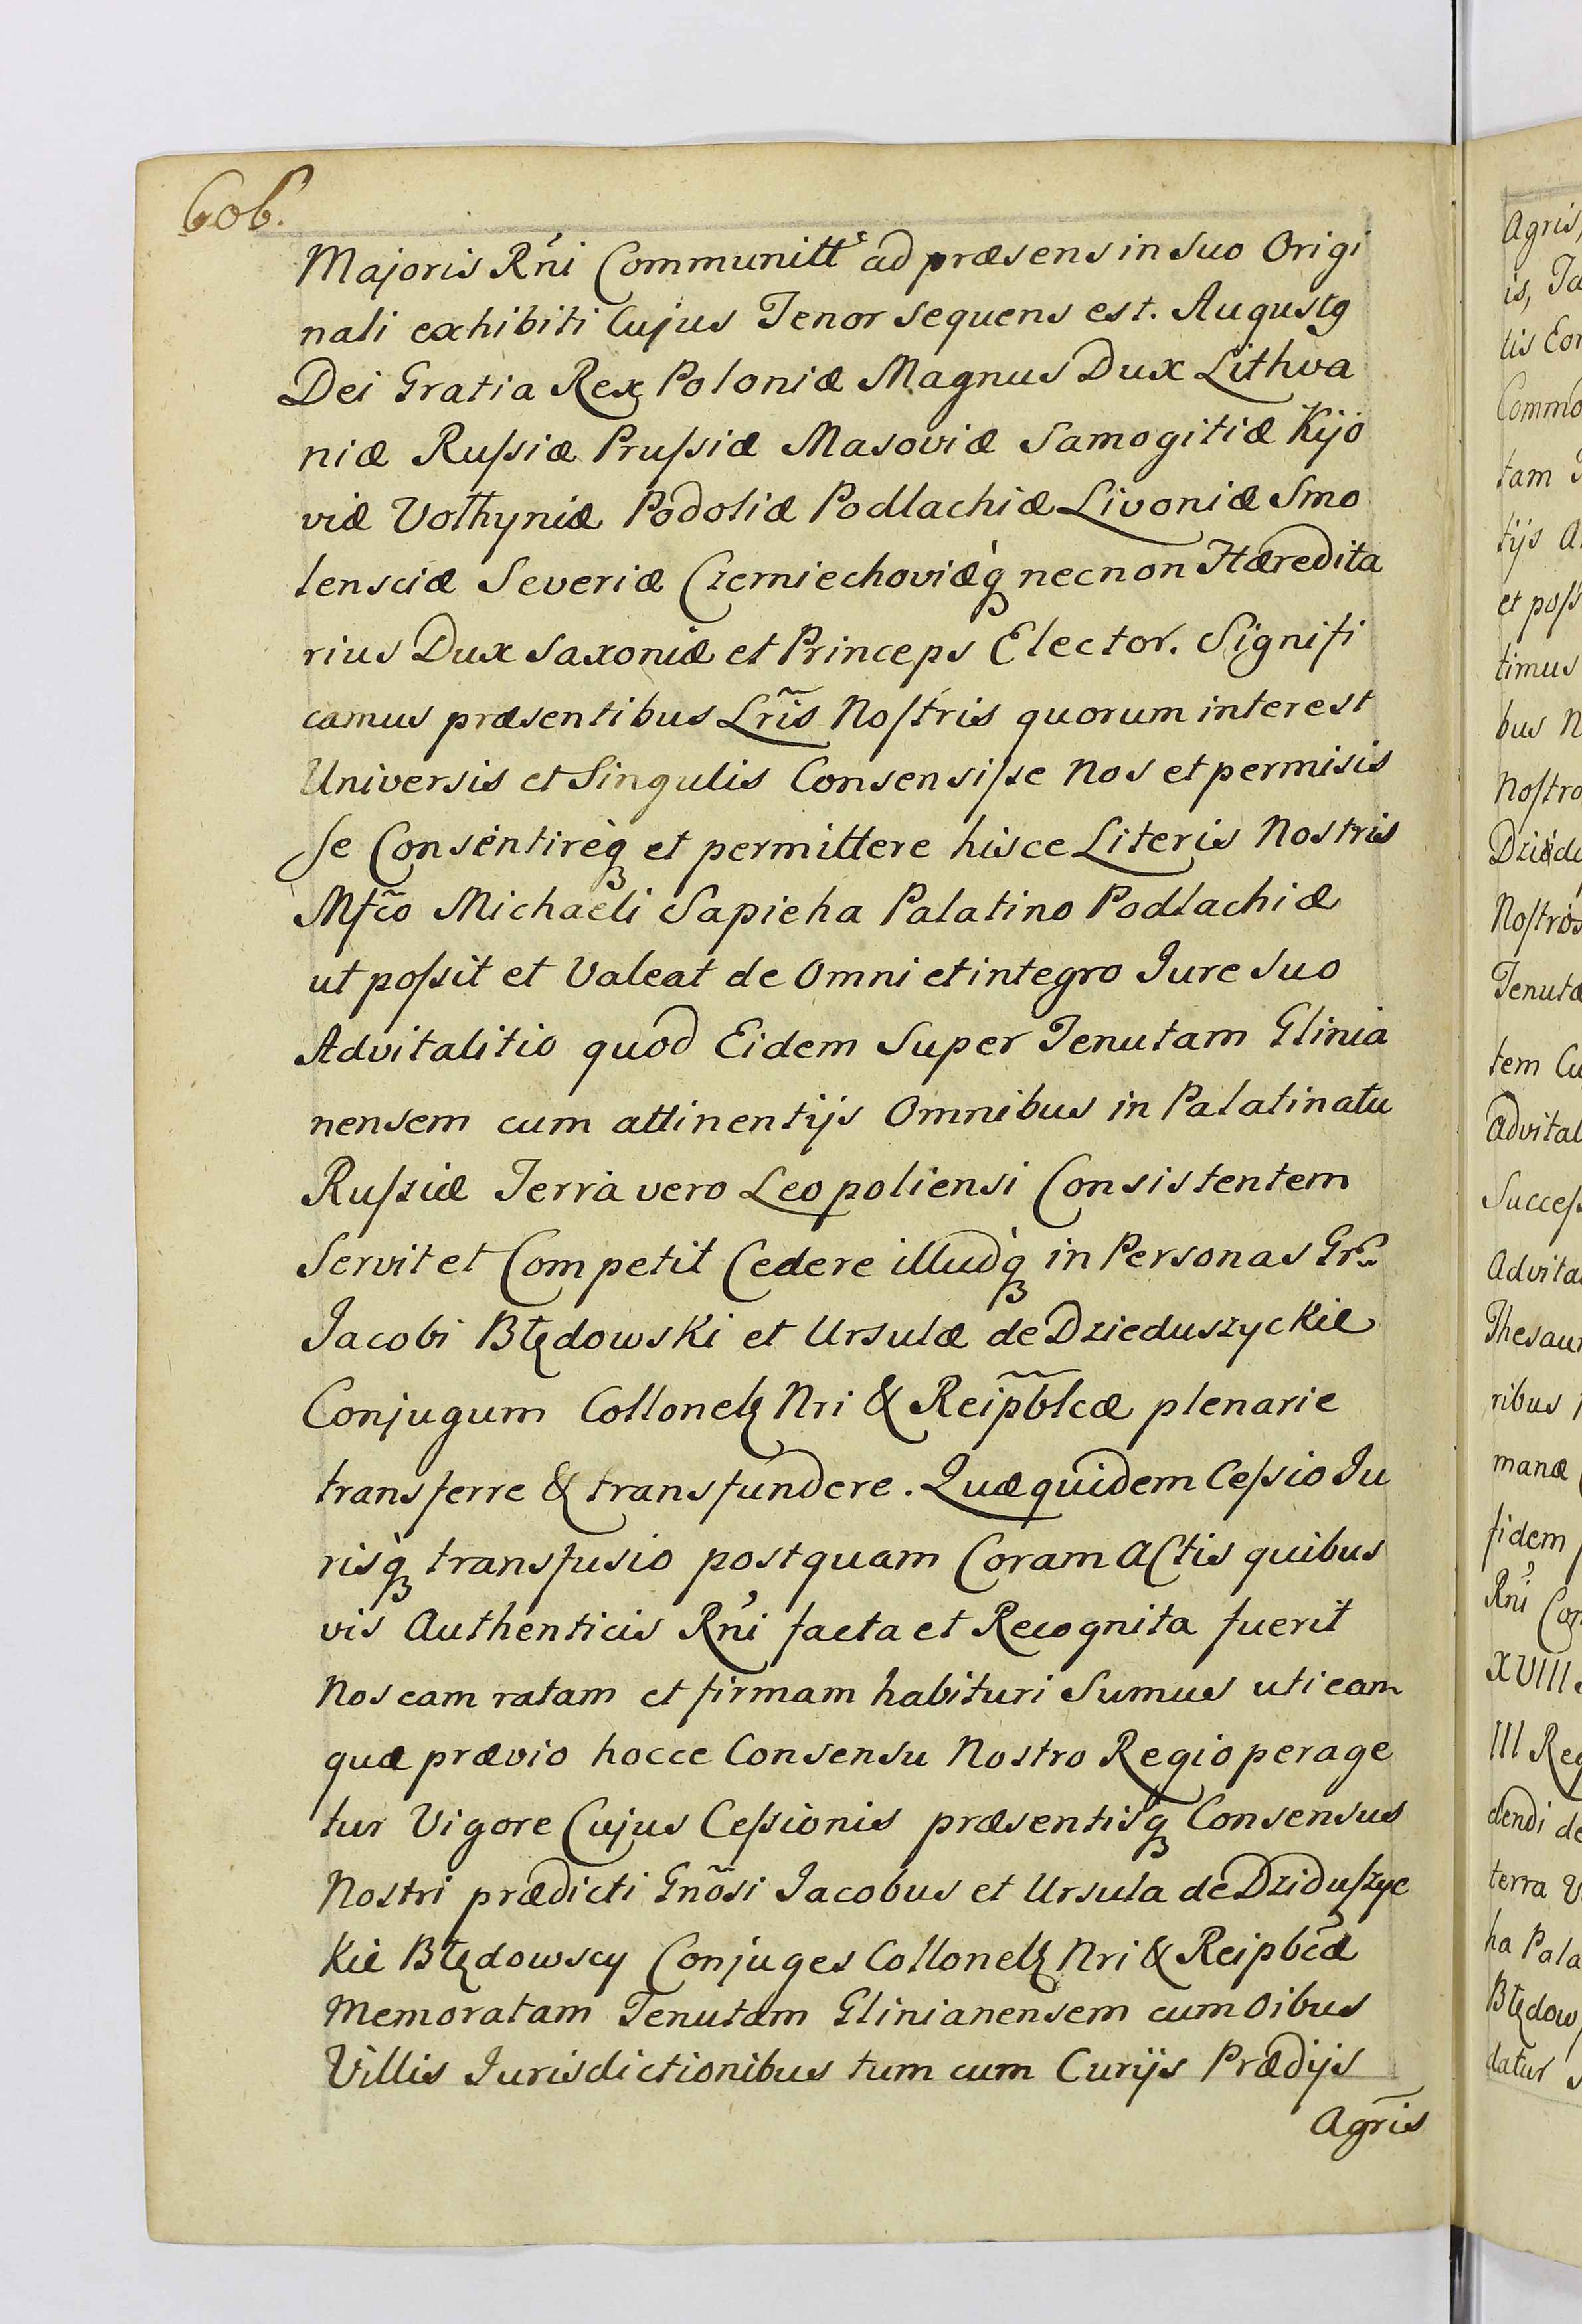 606.
Majoris Rñi Communitt̃ ad præsens in Suo Origi
nali exhibiti Cujus Tenor sequens est. Augustꝯ
Dei Gratia Rex Poloniæ Magnus Dux Lithva
niæ Rußiæ Prußiæ Masoviæ Samogitiæ Kijo
viæ Volhyniæ Podoliæ Podlachiæ Livoniæ Smo
lensciæ Severiæ Czerniechoviæq̨ necnon Hæredita
rius Dux Saxoniæ et Princeps Elector. Signifi
camus præsentibus Lr̃is Nostris quorum interest
Universis et Singulis Consensiſse Nos et permisis
se Consentireq̨ et permittere hisce Literis Nostris
Mfc̃o Michaëli Sapieha Palatino Podlachiæ
ut poſsit et Valeat de Omni et integro Jure Suo
Advitalitio quod Eidem Super Tenutam Glinia
nensem cum attinentijs Omnibus in Palatinatu
Rußiæ Terrà vero Leopoliensi Consistentem
Servit et Competit Cedere illudq̨ in Personas Gr̃
Jacobi Błędowski et Ursulæ de Dzieduszyckie
Conjugum Collonelꝫ Nri & Reip̃blcæ plenarie
transferre & transfundere. Quæ quidem Ceſsio Ju
risq̨ transfusio postquam Coram Actis quibus
vis Authenticis Rñi facta et Recognita fuerit
Nos eam ratam et firmam habituri Sumus uti eam
quæ prævio hocce Consensu Nostro Regio perage
tur Vigore Cujus Ceſsionis præsentisq̨ Consensus
Nostri prædicti Gnõsi Jacobus et Ursula de Dziduſzyc
kie Błędowscy Conjuges Collonelꝫ Nri & Reipbc̃æ
Memoratam Tenutam Glinianensem cum oibus
Villis Jurisdictionibus tum cum Curijs Prædijs
Agris
Agris,
is, Ta
tis Eor
Commo
tam
tijs A
et poſs
timus
bus N
Nostro
Dziedu
Nostros
Tenutæ
tem Cu
Advital
Succeſs
Advita
Thesau
ribus
manæ
fidem
Rñi Com
XVIII
III Reg
dendi de
terra V
ha Pala
Błędow
datur